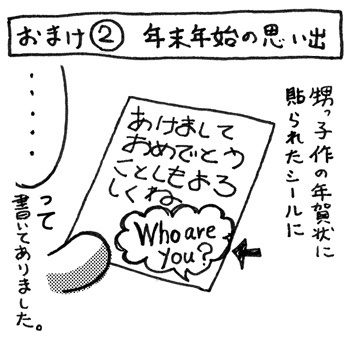 おまけ② 年末年始の思い出
甥っ子作の年賀状に
貼られたシールに
あけまして
おめでとう
ことしもよろ
しくね
Who are
you?
・・・・・・
って
書いてありました。